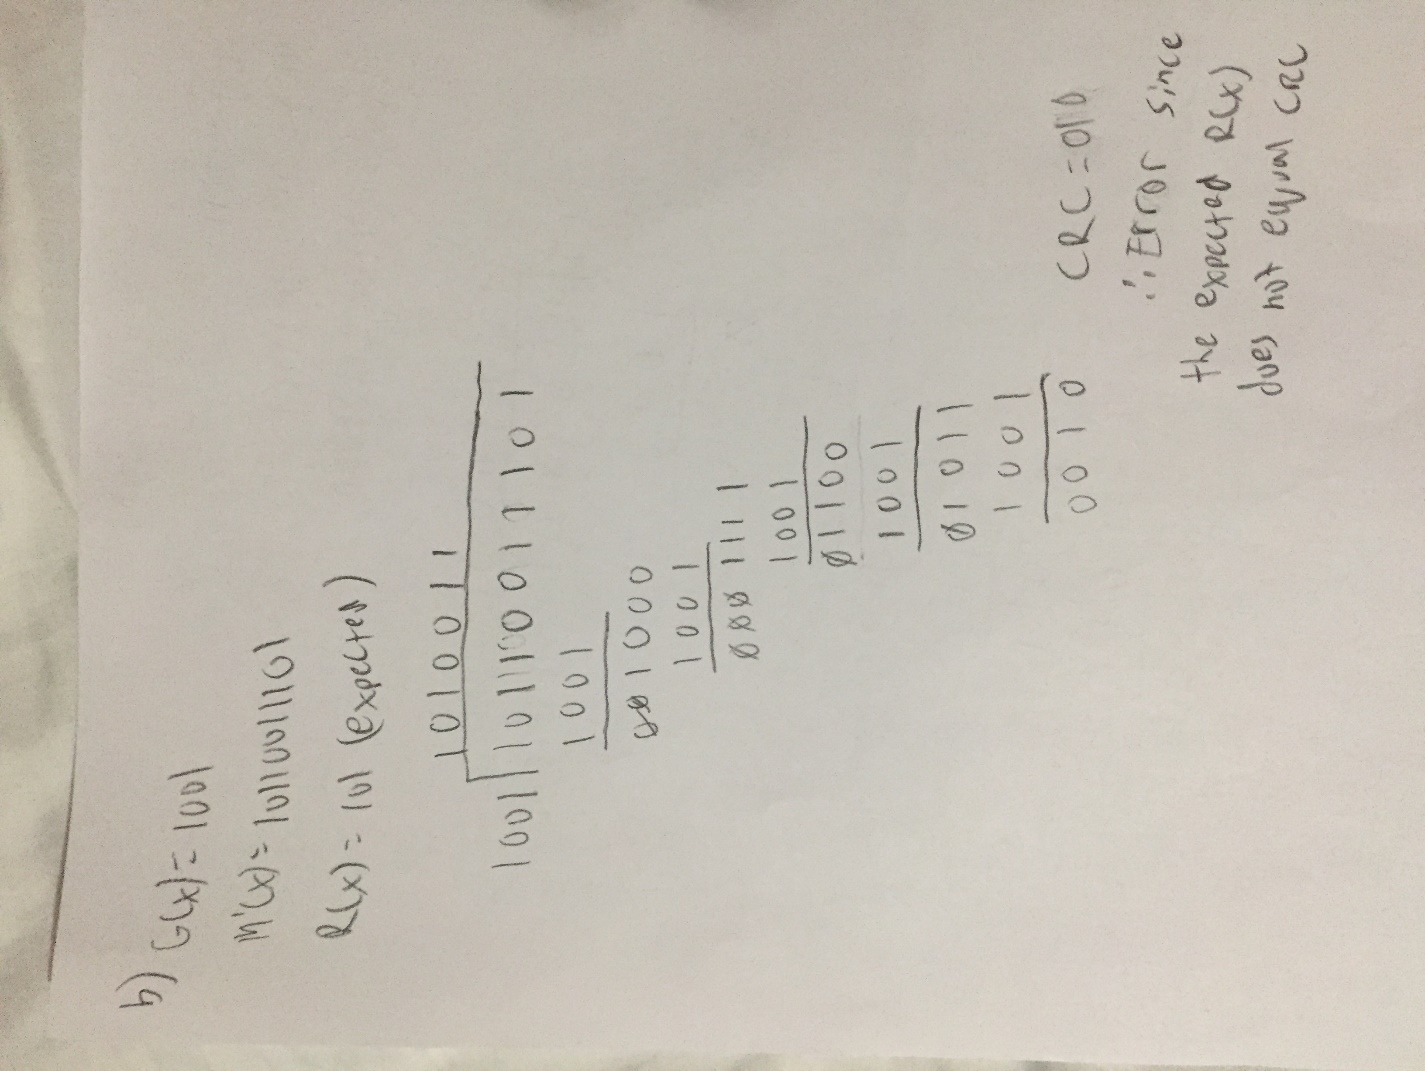 b) G(x) = 1001
M'(x) = 10110011101
R(x) = 101 (expected)
1010011
1001 10110011101
1001
001000
1001
000111 1
1001
01100
1001
01011
1001
0010
CRC = 010
∴ Error since
the expected R(x)
does not equal CRC